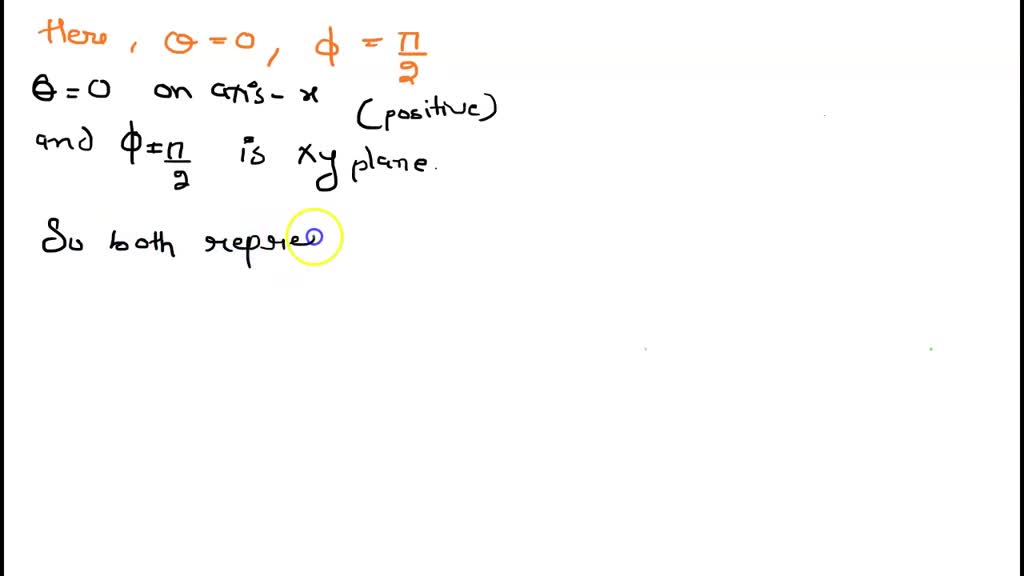 Here, θ = 0, φ = π/2
θ = 0 on axis - x (positive)
and φ = π/2 is xy plane.
So both repre